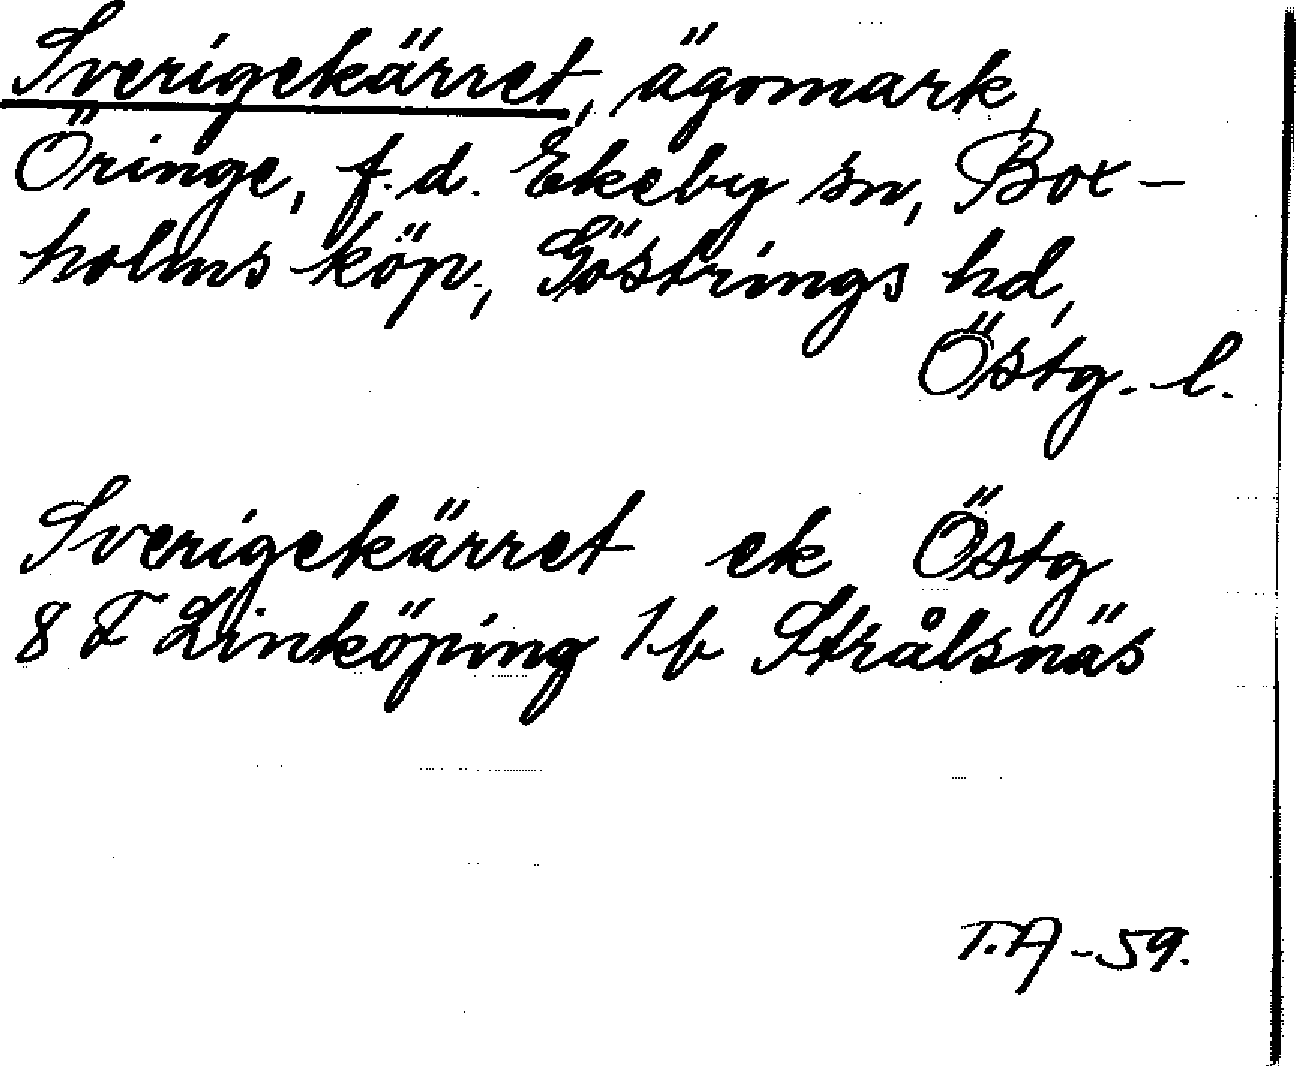 Sverigekärret, ägomark,
Öringe, f.d. Ekeby sn, Box-
holms köp., Göstrings hd,
Östg. l.
Sverigekärret ek Östg
8 F Linköping 1f Strålsnäs
T.A -59.